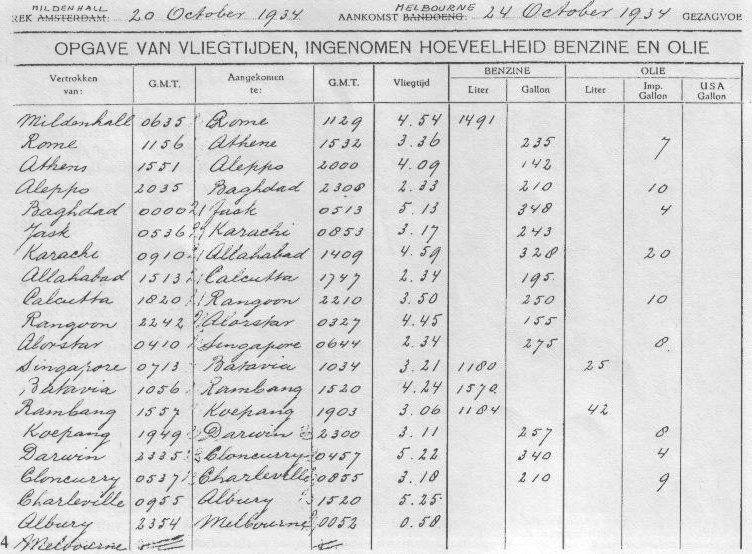 MILDENHALL MELBOURNE
REK AMSTERDAM: 20 October 1934 AANKOMST BANDOENG: 24 October 1934 GEZAGVOE
OPGAVE VAN VLIEGTIJDEN, INGENOMEN HOEVEELHEID BENZINE EN OLIE
Vertrokken van: G.M.T. Aangekomen te: G.M.T. Vliegtijd BENZINE Liter Gallon OLIE Liter Imp. Gallon USA Gallon
Mildenhall 0635 Rome 1129 4.54 1491
Rome 1156 Athene 1532 3.36 235 7
Athens 1551 Aleppo 2000 4.09 142
Aleppo 2035 Baghdad 2308 2.33 210 10
Baghdad 0000 21 Jask 0513 5.13 348 4
Jask 0536 Karachi 0853 3.17 243
Karachi 0910 Allahabad 1409 4.59 328 20
Allahabad 1513 Calcutta 1747 2.34 195
Calcutta 1820 Rangoon 2210 3.50 250 10
Rangoon 2242 Alorstar 0327 4.45 155
Alorstar 0410 Singapore 0644 2.34 275 8
Singapore 0713 Batavia 1034 3.21 1180 25
Batavia 1056 Rambang 1520 4.24 1570
Rambang 1557 Koepang 1903 3.06 1184 42
Koepang 1949 Darwin 2300 3.11 257 8
Darwin 2335 Cloncurry 0457 5.22 340 4
Cloncurry 0537 Charleville 0855 3.18 210 9
Charleville 0955 Albury 1520 5.25
Albury 2354 Melbourne 0052 0.58
4 Melbourne